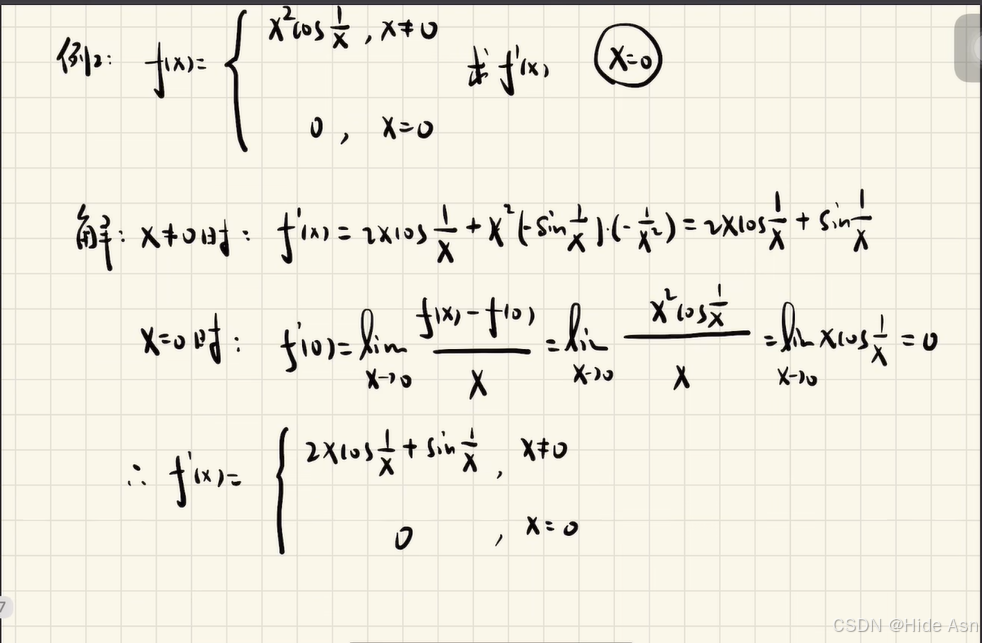 例2: f(x)= { x²cos 1/x , x≠0
0 , x=0
求 f'(x) x=0
解: x≠0时: f'(x)=2xcos 1/x + x²(-sin 1/x)·(-1/x²)=2xcos 1/x + sin 1/x
x=0时: f'(0)=lim x→0 (f(x)-f(0))/x = lim x→0 (x²cos 1/x)/x = lim x→0 xcos 1/x = 0
∴ f'(x)= { 2xcos 1/x + sin 1/x , x≠0
0 , x=0
7
CSDN @Hide Asn